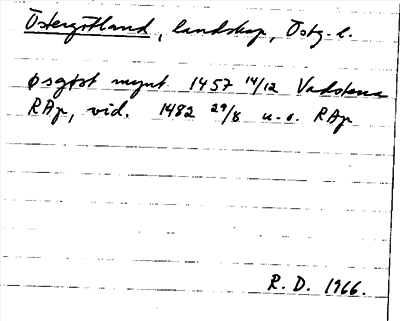 Östergötland, landskap, Östg. l.
øsgøt mynt 1457 14/12 Vadstena
RAp, vid. 1482 29/8 u.o. RAp
R. D. 1966.